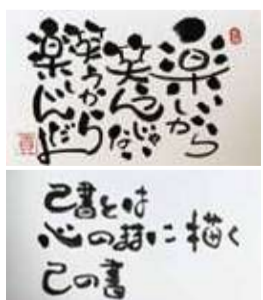 楽しいから
笑うんじゃない
笑うから
楽しいんだよ
己書とは
心のままに描く
己の書